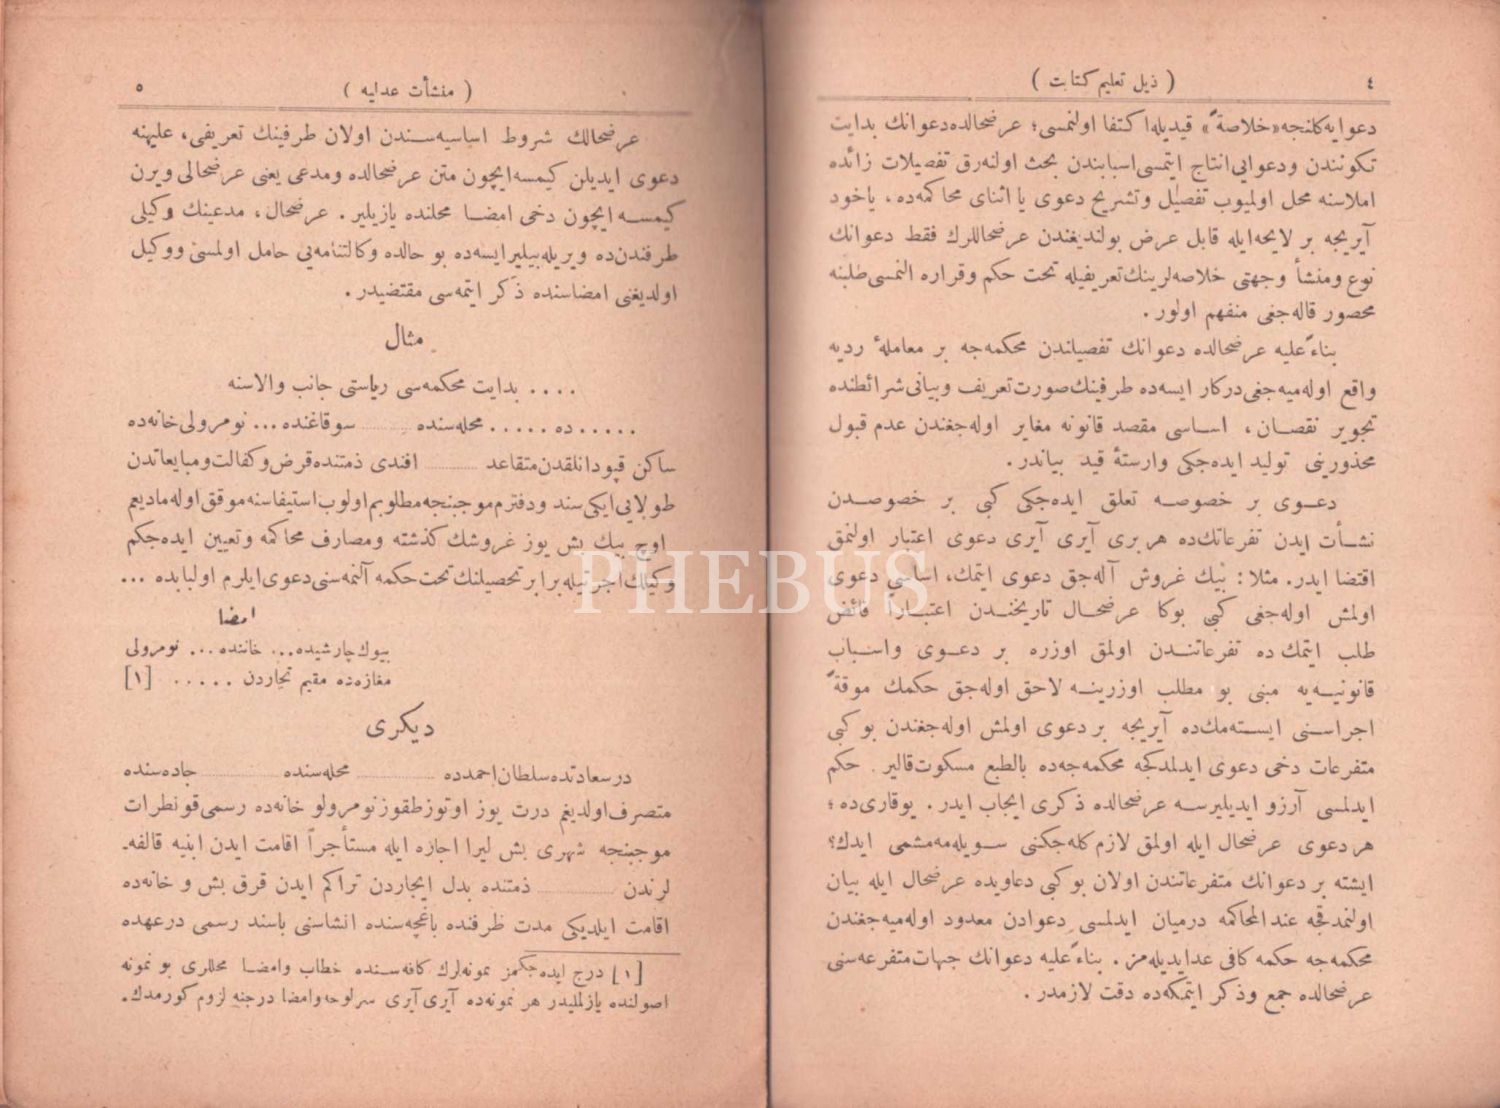 ٤
( ذيل تعليم كتابت )
دعوايه كلنجه «خلاصةً» قيديله اكتفا اولنمسى؛ عرضحالده دعوانك بدايت
تكونندن ودعوايى انتاج ايتمسى اسبابندن بحث اولنه‌رق تفصيلات زائده
املاسنه محل اولميوب تفصيل وتشريح دعوى يا اثناى محاكمه‌ده، ياخود
آيريجه بر لايحه ايله قابل عرض بولنديغندن عرضحاللرك فقط دعوانك
نوع ومنشأ وجهتى خلاصه‌لرينك تعريفيله تحت حكم وقراره النمسى طلبنه
محصور قاله‌جغى منفهم اولور.
بناءً عليه عرضحالده دعوانك تفصيلندن محكمه‌جه بر معاملۀ رديه
واقع اوله‌ميه‌جغى دركار ايسه‌ده طرفينك صورت تعريف وبيانى شرائطنده
تجوير نقصان، اساسى مقصد قانونه مغاير اوله‌جغندن عدم قبول
محذورينى توليد ايده‌جكى وارستۀ قيد بياندر.
دعوى بر خصوصه تعلق ايده‌جكى كبى بر خصوصدن
نشأت ايدن تفرعاتك‌ده هر برى آيرى آيرى دعوى اعتبار اولنمق
اقتضا ايدر. مثلا: بيك غروش آله‌جق دعوى ايتمك، اساسى دعوى
اولمش اوله‌جغى كبى بوكا عرضحال تاريخندن اعتباراً فائض
طلب ايتمك ده تفرعاتندن اولمق اوزره بر دعوى واسباب
قانونيه‌يه مبنى بو مطلب اوزرينه لاحق اوله‌جق حكمك موقةً
اجراسنى ايسته‌مك‌ده آيريجه بر دعوى اولمش اوله‌جغندن بو كبى
متفرعات دخى دعوى ايدلمدكجه محكمه‌جه‌ده بالطبع مسكوت قالير. حكم
ايدلمسى آرزو ايديليرسه عرضحالده ذكرى ايجاب ايدر. يوقارى‌ده؛
هر دعوى عرضحال ايله اولمق لازم كله‌جكنى سويله‌مه‌مشمى ايدك؟
ايشته بر دعوانك متفرعاتندن اولان بو كبى دعاويده عرضحال ايله بيان
اولنمدقجه عند المحاكمه درميان ايدلمسى دعوادن معدود اوله‌ميه‌جغندن
محكمه‌جه حكمه كافى عد ايديله‌مز. بناءً عليه دعوانك جهات متفرعه‌سنى
عرضحالده جمع وذكر ايتمكه‌ده دقت لازمدر.
( منشأت عدليه )
٥
عرضحالك شروط اساسيه‌سندن اولان طرفينك تعريفى، عليهنه
دعوى ايديلن كيمسه ايچون متن عرضحالده ومدعى يعنى عرضحالى ويرن
كيمسه ايچون دخى امضا محلنده يازيلير. عرضحال، مدعينك وكيلى
طرفندن‌ده ويريله‌بيلير ايسه‌ده بو حالده وكالتنامه‌يى حامل اولمسى ووكيل
اولديغنى امضاسنده ذكر ايتمه‌سى مقتضيدر.
مثال
.... بدايت محكمه‌سى رياستى جانب والاسنه
..... ده ..... محله‌سنده ...... سوقاغنده ... نومرولى خانه‌ده
ساكن قپودانلقدن متقاعد ...... افندى ذمتنده قرض وكفالت ومبايعاتدن
طولايى ايكى سند ودفترم موجبنجه مطلوبم اولوب استيفاسنه موفق اوله‌ماديغم
اوچ بيك بش يوز غروشك كذشته ومصارف محاكمه وتعيين ايده‌جكم
وكيلك اجرتيله برابر تحصيلنك تحت حكمه آلنمه‌سنى دعوى ايلرم اولبابده ...
امضا
بيوك چارشيده... خاننده... نومرولى
مغازه‌ده مقيم تجاردن ..... [١]
ديكرى
درسعادتده سلطان احمدده ...... محله‌سنده ...... جاده‌سنده
متصرف اولديغم درت يوز اوتوز طقوز نومرولو خانه‌ده رسمى قونطرات
موجبنجه شهرى بش ليرا اجاره ايله مستأجراً اقامت ايدن ابنيه قالفه‌-
لرندن ...... ذمتنده بدل ايجاردن تراكم ايدن قرق بش و خانه‌ده
اقامت ايلديكى مدت ظرفنده باغچه‌سنده انشاسنى باسند رسمى درعهده
[١] درج ايده‌جكمز نمونه‌لرك كافه‌سنده خطاب وامضا محللرى بو نمونه
اصولنده يازلمليدر هر نمونه‌ده آيرى آيرى سرلوحه وامضا درجنه لزوم كورمدك.
PHEBUS